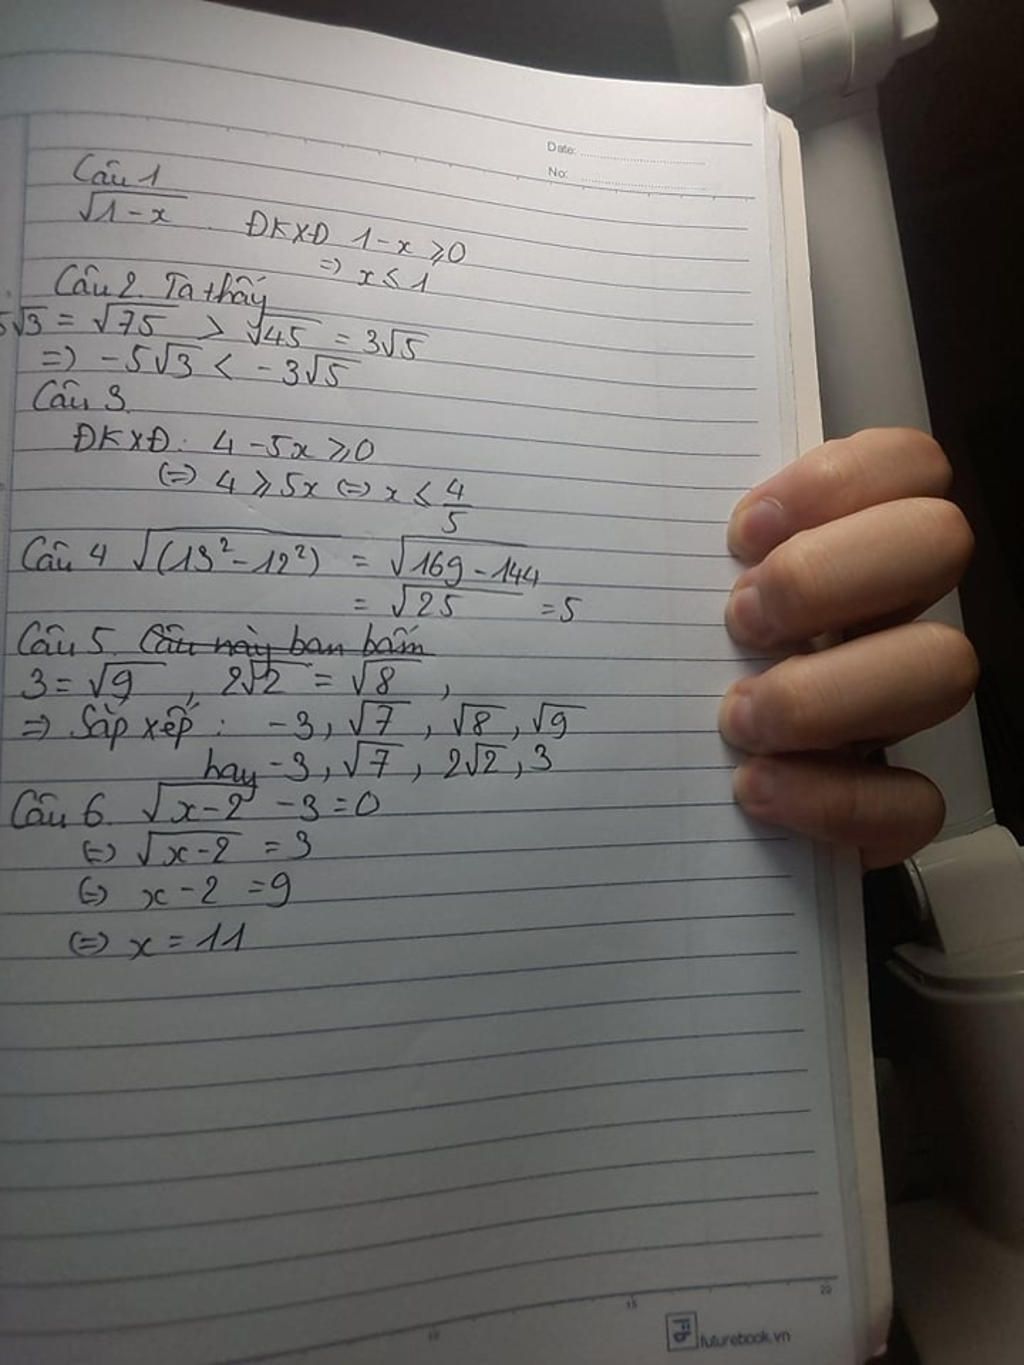 Date:
No:
Câu 1
√1-x . ĐKXĐ 1-x ⩾0
=> x≤1
Câu 2. Ta thấy
5√3 = √75 > √45 = 3√5
=> -5√3 < -3√5
Câu 3.
ĐKXĐ: 4-5x ⩾0
(=) 4 ⩾ 5x (=) x ≤ 4/5
Câu 4 √(13²-12²) = √169-144
= √25 = 5
Câu 5. Câu này ban bấm
3 = √9 , 2√2 = √8 ,
=> Sắp xếp : -3, √7 , √8 , √9
hay -3, √7 , 2√2 , 3
Câu 6. √x-2 -3=0
(=) √x-2 = 3
(=) x-2 = 9
(=) x = 11
10 15 20
Fb futurebook.vn